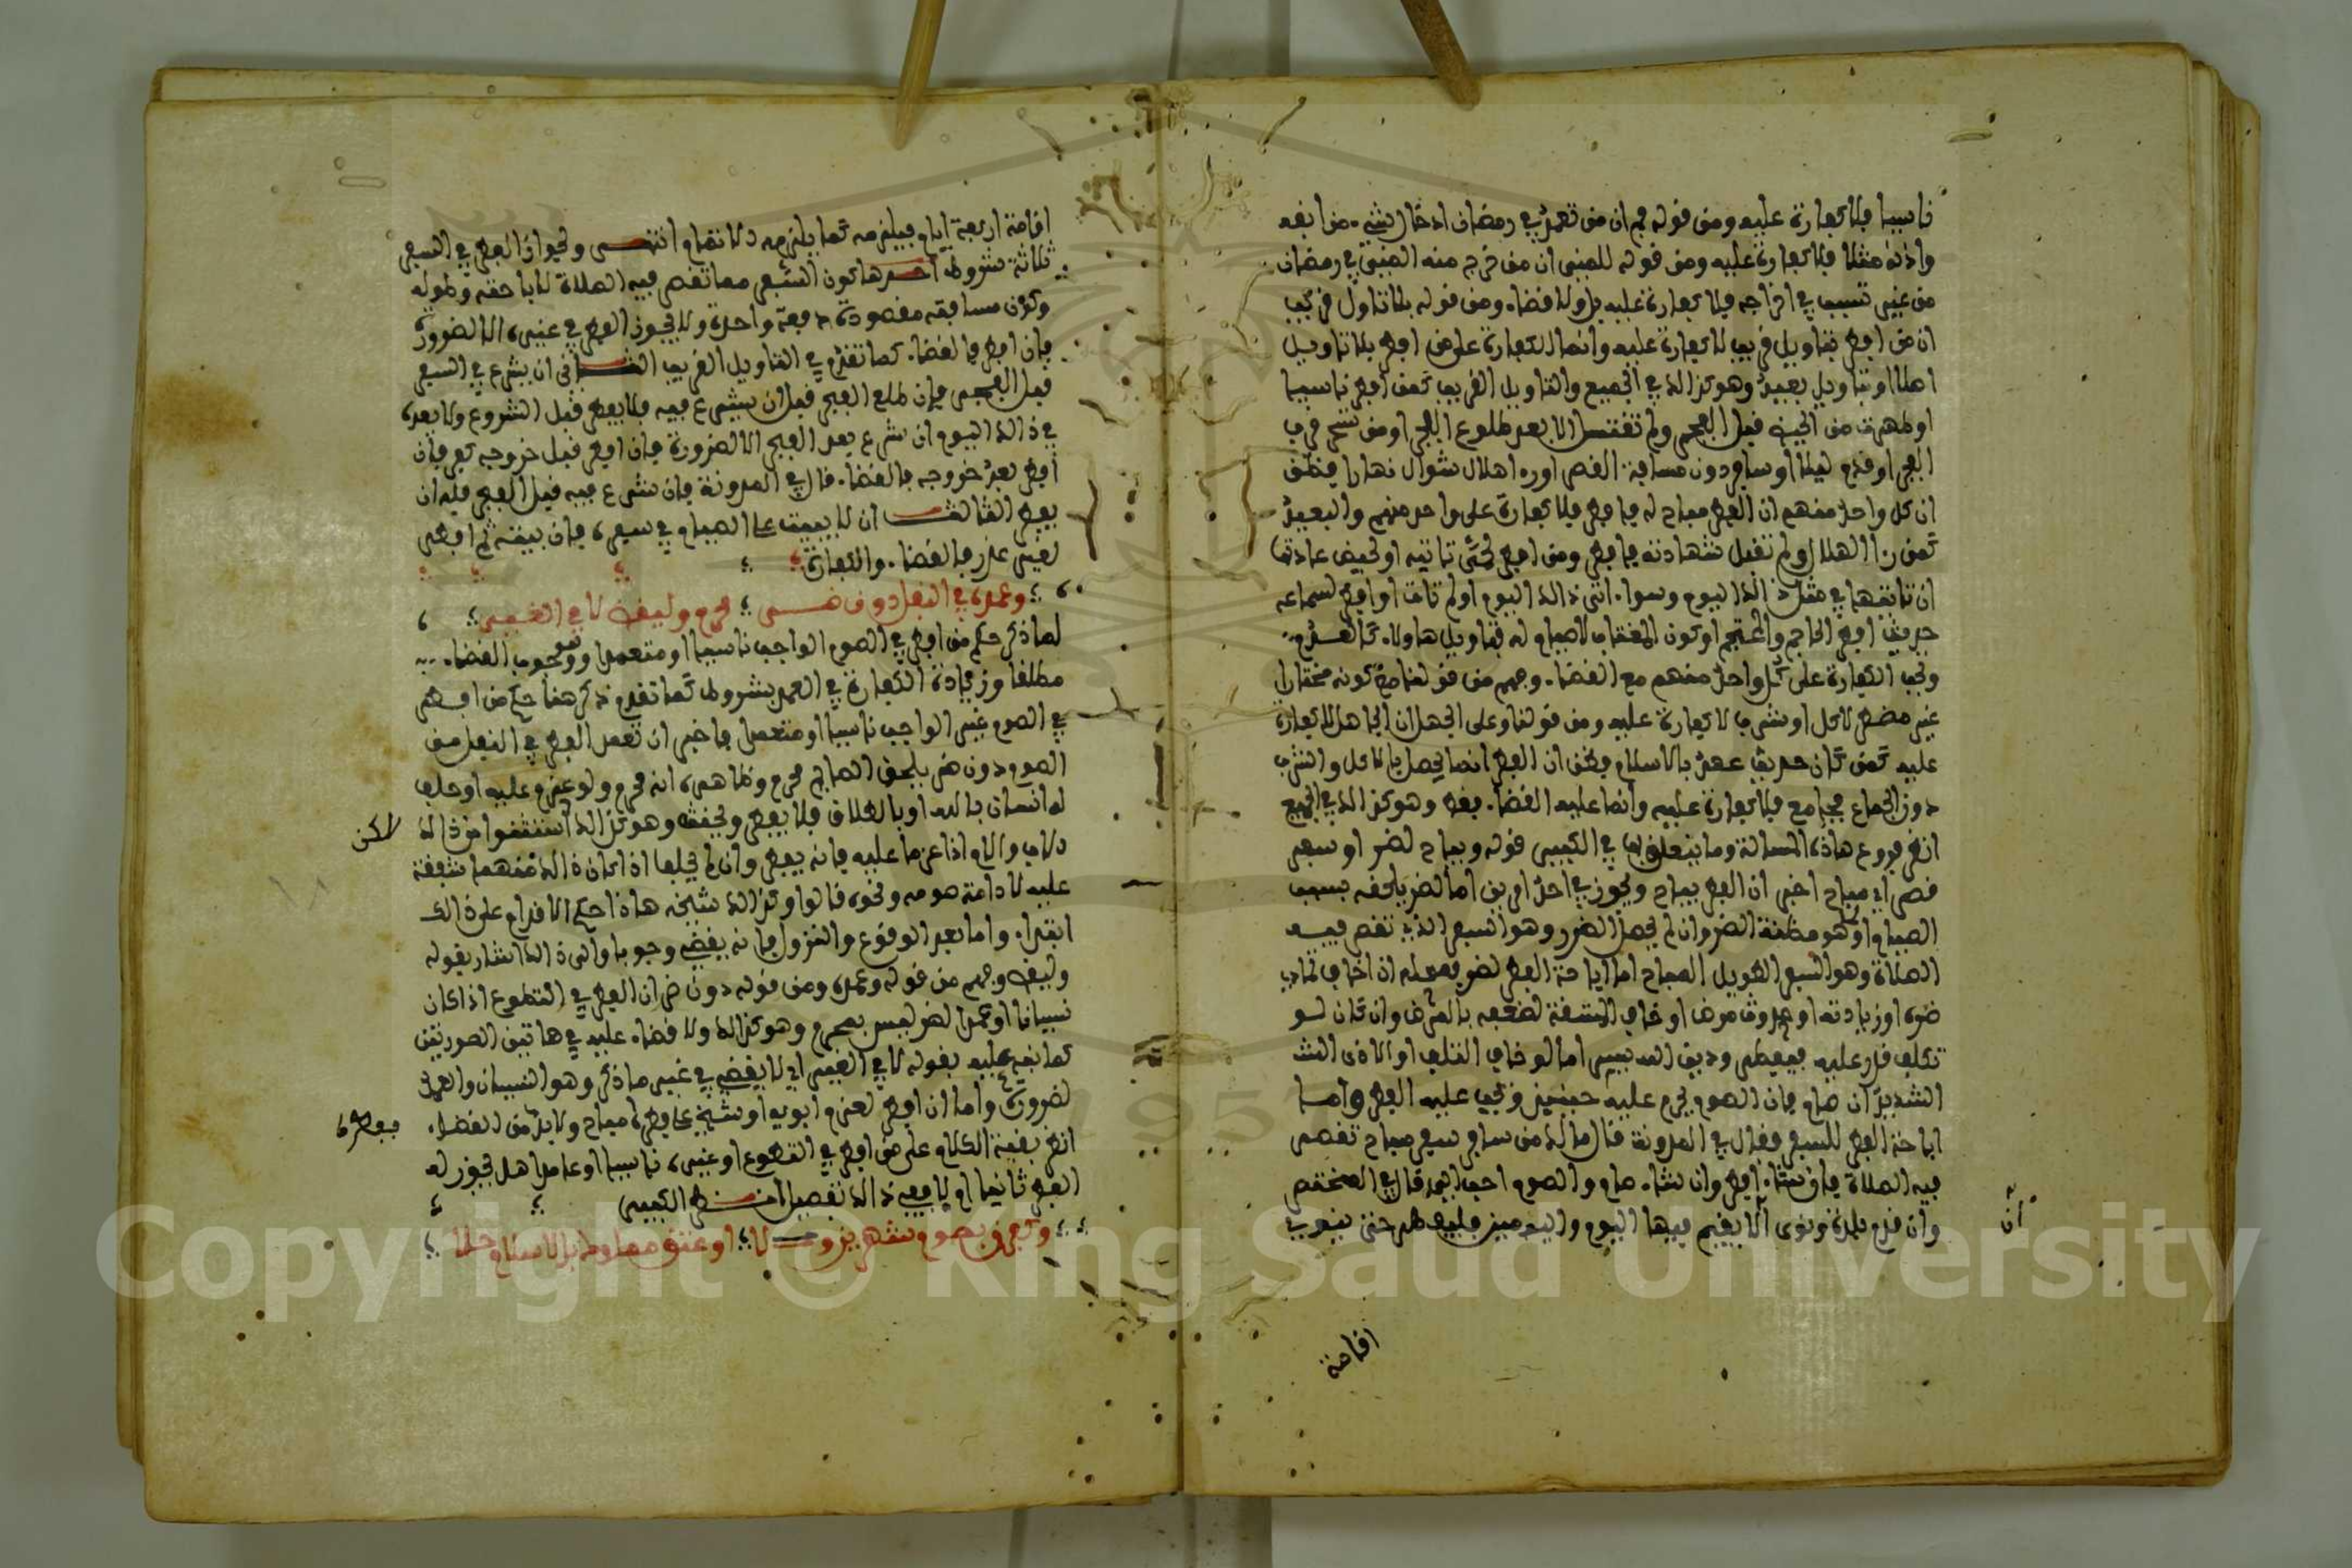 ناسيا فلا كفارة عليه ومن قوله فم ان من تعمد في رمضان ادخال شيء من انفه
واذنه مثلا فلا كفارة عليه ومن قوله للمني ان من خرج منه المني في رمضان
من غير تسبب في اخراجه فلا كفارة عليه بل ولا قضاء ومن قوله بلا تاول قريب
ان من افطر بتاويل قريب لا كفارة عليه وانما الكفارة على من افطر بلا تاويل
اصلا او بتاويل بعيد وهو كذالك في الجميع والتاويل القريب كمن افطر ناسيا
او طهرت من الحيض قبل الفجر ولم تغتسل الا بعد طلوع الفجر او من تسحر قرب
الفجر او قدم ليلا او سافر دون مسافة القصر او راى هلال شوال نهارا فظن
ان كل واحد منهم ان الفطر مباح له فافطر فلا كفارة على واحد منهم والبعيد
كمن راى الهلال ولم تقبل شهادته فافطر ومن افطر لحمى تاتيه او لحيض عادتها
ان تاتيها في مثل ذالك اليوم وسواء اتى ذالك اليوم او لم تات او افطر لسماعه
حديث افطر الحاجم والمحتجم او كون المغتاب لا صيام له فتاويل هاولاء كالعدم
وتجب الكفارة على كل واحد منهم مع القضاء وفهم من قولنا مع كونه مختارا
غير مضطر لاكل او شرب لا كفارة عليه ومن قولنا وعلى الجهل ان الجاهل لا كفارة
عليه كمن كان حديث عهد بالاسلام فظن ان الفطر انما يحصل بالاكل والشرب
دون الجماع فجامع فلا كفارة عليه وانما عليه القضاء فقط وهو كذالك في الجميع
انظر فروع هاذه المسالة وما يتعلق بها في الكبير قوله ويباح لضر او سفر
قصر اي مباح اخبر ان الفطر يباح ويجوز في احد امرين اما لضر يلحقه بسبب
الصيام او لما هو مظنة الضر وان لم يحصل الضرر وهو السفر الذي تقصر فيه
الصلاة وهو السفر الطويل المباح اما اباحة الفطر لضر فمعلم ان اخاف تمادي
ضره او زيادته او حدوث مرض او خاف المشقة لضعفه بالمرض وان كان لو
تكلف قدر عليه فيفطر ودين الله يسر اما لو خاف التلف او الاذى الشد
الشديد ان صام فان الصوم يحرم عليه حينئذ ويجب عليه الفطر واما
اباحة الفطر للسفر فقال في المدونة قال مالك من سافر سفر مباح تقصر
فيه الصلاة فان شاء افطر وان شاء صام والصوم احب اليه قال في المختصر
وان قدم بلدة ونوى الا يقيم فيها اليوم واليومين فليفطر حتى ينوي
ان
اقامة
اقامة اربعة ايام فيلزمه كما يلزمه الاتمام انتهى ولجواز الفطر في السفر
ثلاثة شروط احدها كون السفر مما تقصر فيه الصلاة لاباحته وطوله
وكون مسافته مقصودة دفعة واحدة ولا يجوز الفطر في غيره الا لضرورة
فان افطر فالقضاء كما تقدم في التاويل القريب الثاني ان يشرع في السفر
قبل الفجر فان طلع الفجر قبل ان يشرع فيه فلا يفطر قبل الشروع ولا بعده
في ذالك اليوم ان شرع بعد الفجر الا لضرورة فان افطر قبل خروجه كفر فان
افطر بعد خروجه فالقضاء قال في المدونة فان شرع فيه قبل الفجر فله ان
يفطر الثالث ان لا يبيت على الصيام في سفره فان بيته ثم افطر
لغير عذر فالقضاء والكفارة
وعمده في النفل دون ضر محرم وليقض لا في الغير
لما ذكر حكم من افطر في الصوم الواجب ناسيا او متعمدا وهو وجوب القضاء
مطلقا وزيادة الكفارة في العمد بشروط كما تقدم ذكر هنا حكم من افطر
في الصوم غير الواجب ناسيا او متعمدا فاخبر ان تعمد الفطر في النفل من
الصوم دون ضر يلحق الصائم محرم وظاهره انه محرم ولو عزم عليه او حلف
له انسان بالله او بالطلاق فلا يفطر ويحنث وهو كذالك استثنوا من ذالك
لاكن
الاب والام اذا عزما عليه فانه يفطر وان لم يحلفا اذا كان ذالك منهما شفقة
عليه لادامة صومه ونحوه قالوا وكذالك شيخه هاذا حكم الاقدام على ذالك
ابتداء واما بعد الوقوع والنزول فانه يقضي وجوبا والى ذالك اشار بقوله
وليقض وفهم من قوله وعمده ومن قوله دون ضر ان الفطر في التطوع اذا كان
نسيانا او عمدا لضر ليس بمحرم وهو كذالك ولا قضاء عليه في هاتين الصورتين
كما نبه عليه بقوله لا في الغير اي لا يقضي في غير ما ذكر وهو النسيان والعمد
لضرورة واما ان افطر لعزم ابويه او شيخه فافطر مباح ولا بد من القضاء
ففطره
انظر بقية الكلام على من افطر في التطوع او غيره ناسيا او عامدا هل يجوز له
الفطر ثانيا ام لا ففي ذالك تفصيل انظر الكبير
وكفرن بصوم شهرين ولا او عتق مملوك بالاسلام حلا
Copyright © King Saud University